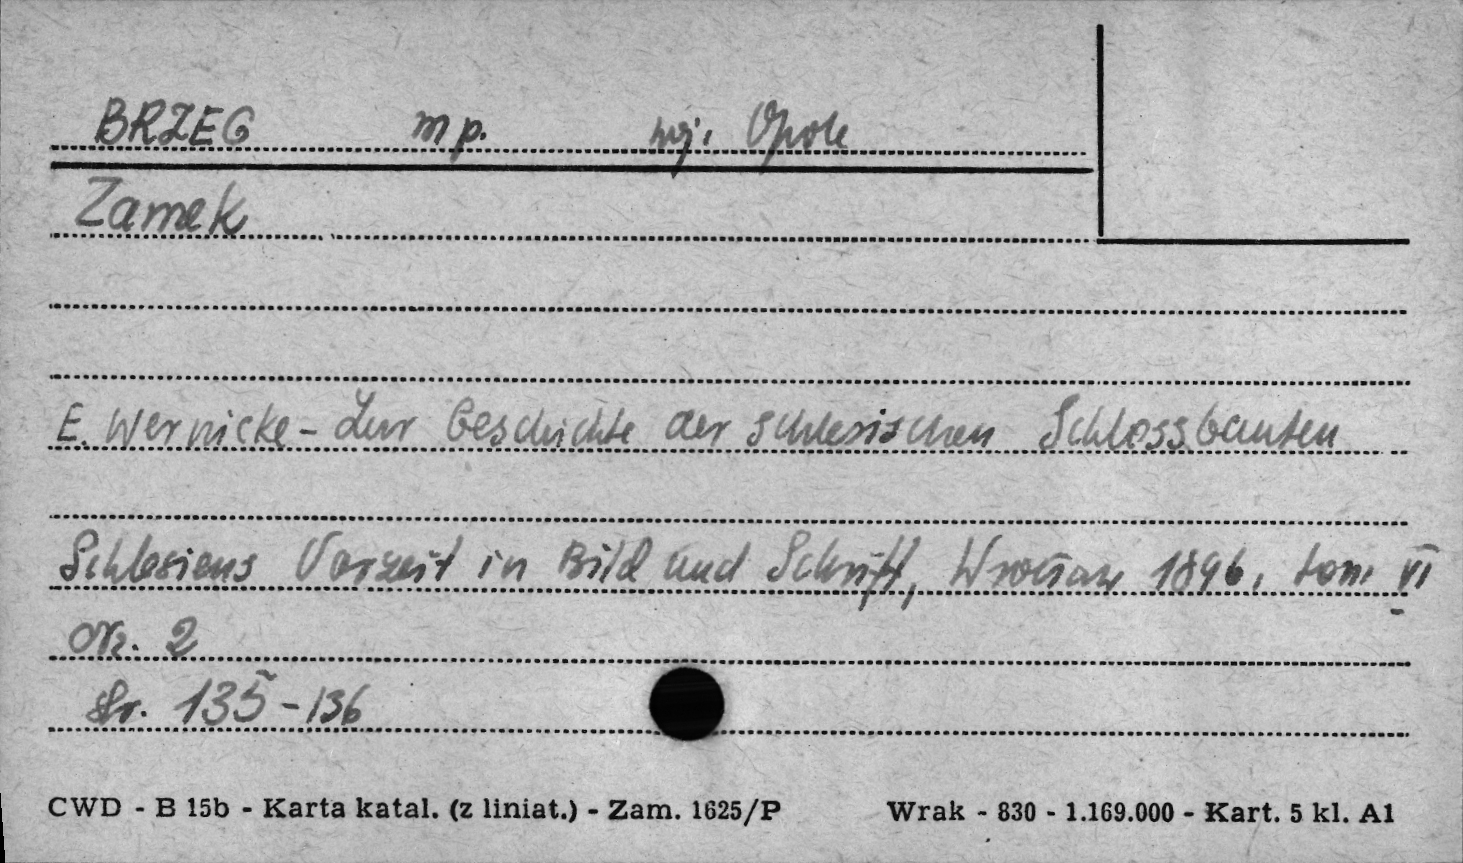 BRZEG mp. woj. Opole
Zamek
E. Wernicke - Zur Geschichte der schlesischen Schlossbauten
Schlesiens Vorzeit in Bild und Schrift, Wrocław 1896, tom VI
Nr. 2
str. 135-136
CWD - B 15b - Karta katal. (z liniat.) - Zam. 1625/P Wrak - 830 - 1.169.000 - Kart. 5 kl. A1